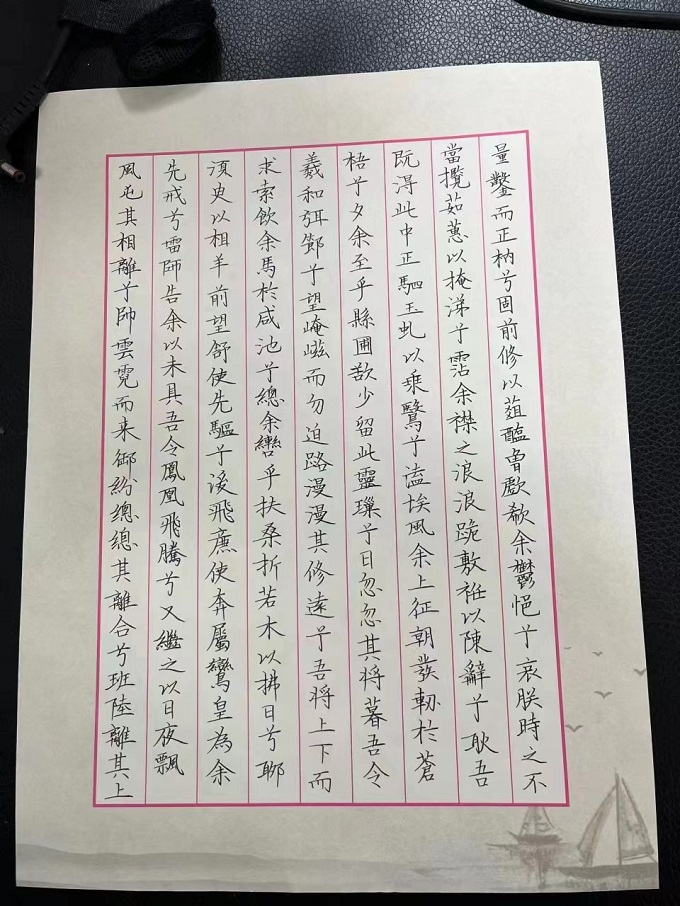 量鑿而正枘兮固前修以葅醢曾歔欷余鬱悒兮哀朕時之不
當攬茹蕙以掩涕兮霑余襟之浪浪跪敷衽以陳辭兮耿吾
既得此中正駟玉虬以乗鷖兮溘埃風余上征朝發軔於蒼
梧兮夕余至乎縣圃欲少留此靈璅兮日忽忽其将暮吾令
羲和弭節兮望崦嵫而勿迫路漫漫其修遠兮吾将上下而
求索飲余馬於咸池兮總余轡乎扶桑折若木以拂日兮聊
須臾以相羊前望舒使先驅兮後飛廉使奔屬鸞皇為余
先戒兮雷師告余以未具吾令鳳凰飛騰兮又繼之以日夜飄
風屯其相離兮帥雲霓而来御紛總總其離合兮班陸離其上